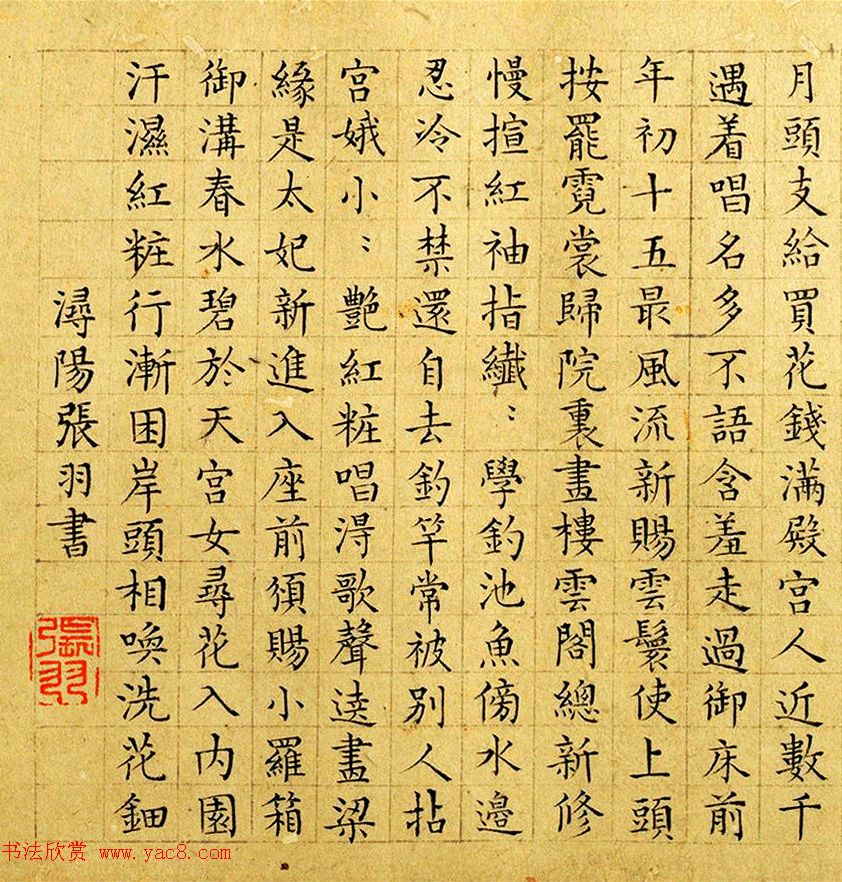 月頭支給買花錢滿殿宮人近數千
遇着唱名多不語含羞走過御床前
年初十五最風流新賜雲鬟使上頭
按罷霓裳歸院裏畫樓雲閣總新修
慢揎紅袖指纖〻學釣池魚傍水邊
忍冷不禁還自去釣竿常被別人拈
宮娥小〻艷紅粧唱淂歌聲遶畫梁
緣是太妃新進入座前須賜小羅箱
御溝春水碧於天宮女尋花入內園
汗濕紅粧行漸困岸頭相喚洗花鈿
潯陽張羽書
張羽
书法欣赏 www.yac8.com